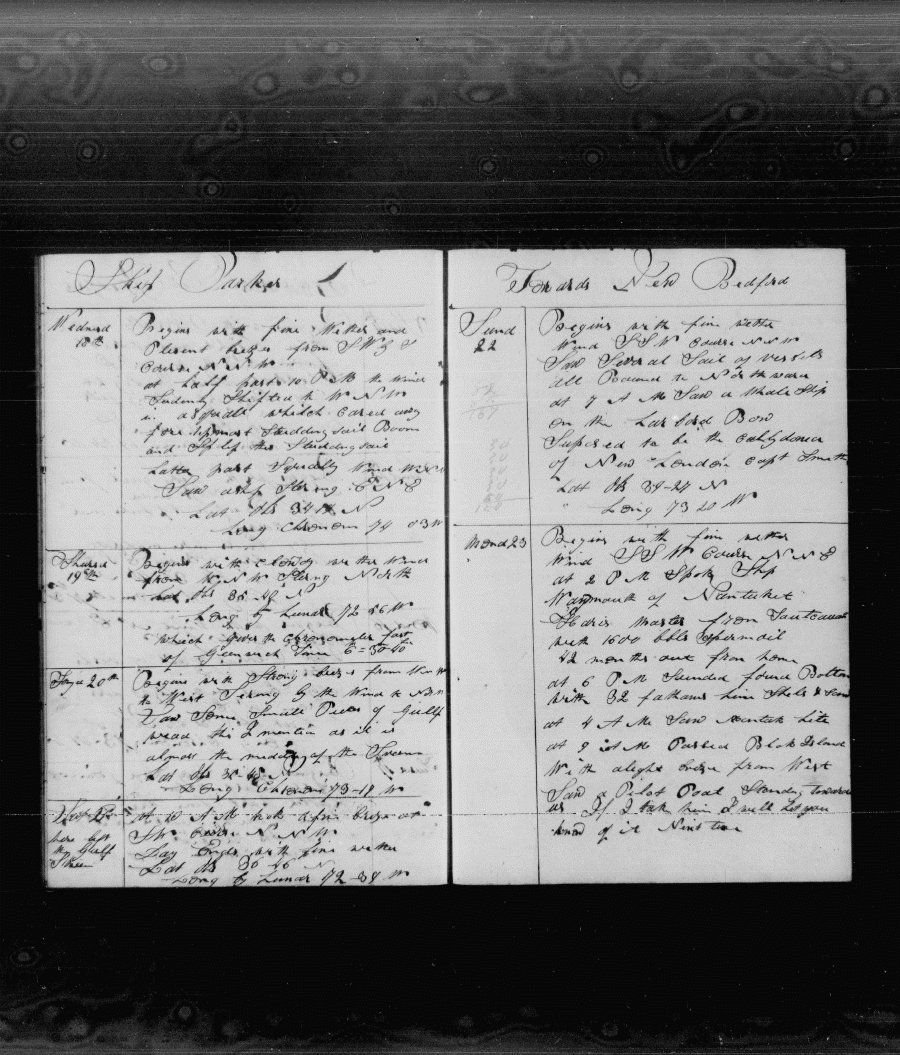 Ship Parker
Wednsd
18th
Begins with fine Wether and
Plesent brezes from SW by S
Course N N W
at half past 10 P M the Wind
Sudenly Shifted to W N W
in a squall which caried away
fore topmast Studdingsail Boom
and Split the Studdingsail
Latter part Squally Wind WNW
Saw a ship Stering E N E
Lat Obs 34 N
Long Chronom 74 03 W
Thursd
19th
Begins with cloudy wether Wind
from W N W Stering North
Lat Obs 35 N
Long by Lunar 72 56 W
which gives the chronometer fast
of Greenwich Time 6 = 30 40
Fryd 20th
Begins with Strong brezes from WNW
to West Stering by the Wind to
Saw Some Small Peces of Gullf
wead this I mention as it is
almost the midding of the Streem
Lat Obs 36 N
Long Chronom 73-17 W
21st
here left
the Gullf
Streem
at 10 A M took a fine breze at
SW Course N N W
Day Ends with fine wether
Lat Obs 36 46 N
Long by Lunar 72-38 W
Towards New Bedford
Sund
22
Begins with fine wether
Wind S S W Course N N W
Saw Several Sail of vessels
all Bound to Northward
at 7 A M Saw a Whale Ship
on the Larbord Bow
Suposed to be the
of New London capt Smith
Lat Obs 39-24 N
Long 73 20 W
Mond 23
Begins with fine wether
Wind S S W Course N N E
at 2 P M Spok Ship
of Nantuket
Haris Master from
with 1600 bbls Spermoil
42 months out from home
at 6 P M Sounded found Bottom
with 32 fathams line Shels & Sand
at 4 A M Saw Lite
at 9 A M Passed Blok Island
With alight breze from West
Saw a Pilot Boat Standing toward
us If I tak him I will let you
know of it Next time